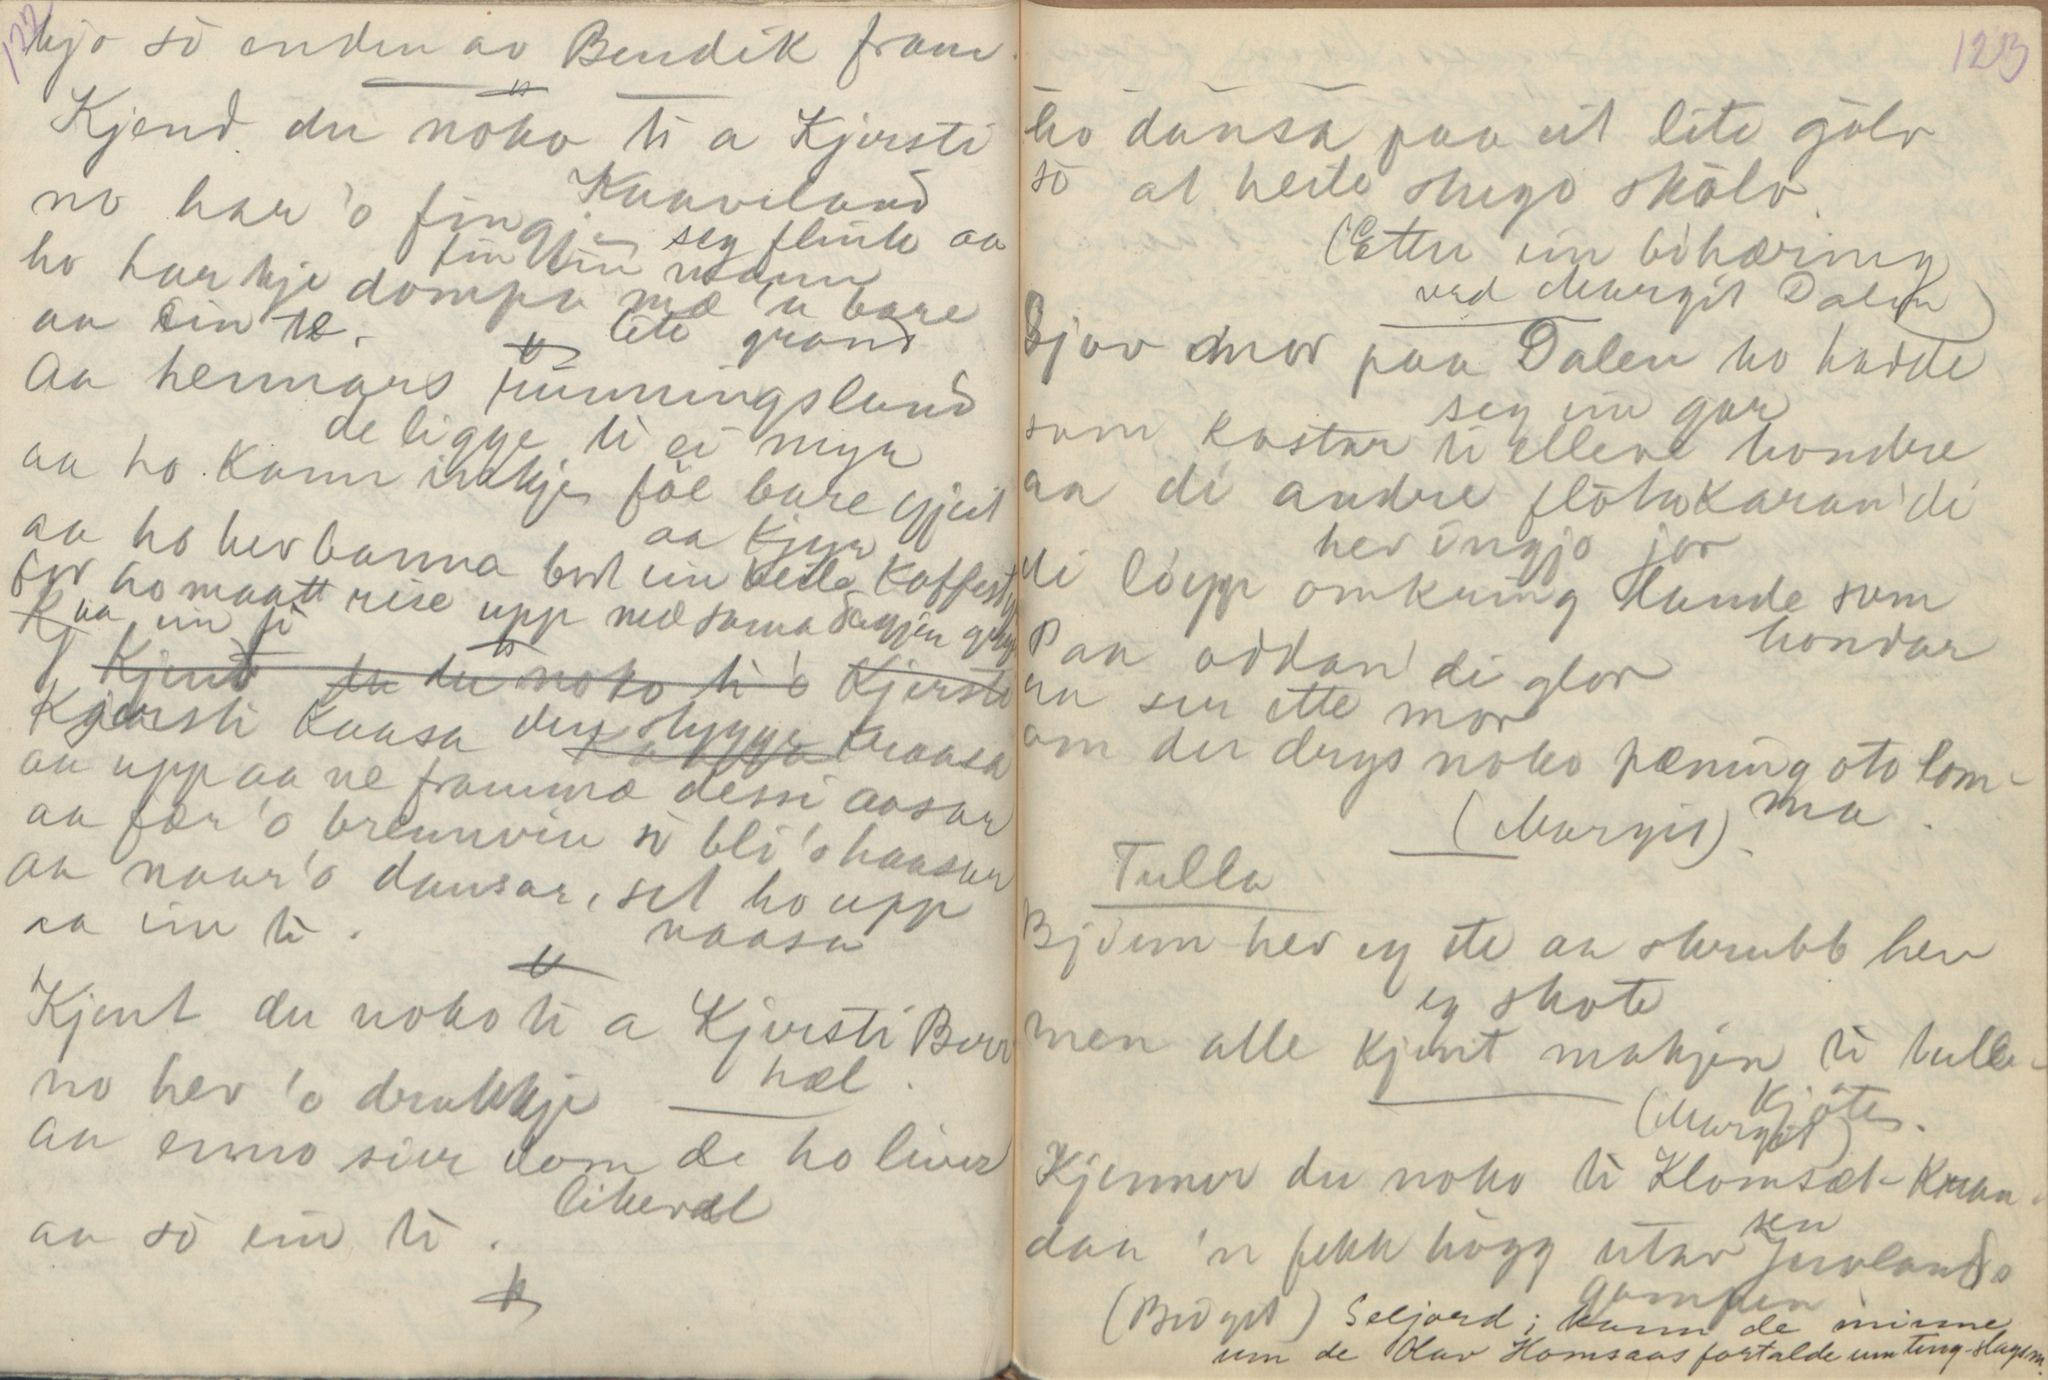 122
kjo so enden av Bendik fram.
Kjend du noko ti a Kjersti
Kaaveland
no har 'o fingje seg flink aa
fin ein mann
ho har kje dompa mæ 'n bare
lite grand
aa ein te.
Aa hennars runningsland
de ligge ti ei myr
aa ho kann inkje föe bare gjeit
aa kjyr
aa ho hev banna bort ein heile
for ho maatt reise upp med sama
Kj aa ein ti
Kjend du du noko ti 'o Kjersti
Kjersti Kaasa den stygge kraasa
aa upp aa ne frammæ dessi aasar
aa fær 'o brennvin so bli 'o haasar
aa naar 'o dansar, set ho upp
naasa
aa ein ti.
Kjent du noko ti a Kjersti Berr
hæl.
no hev 'o drukkje
aa enno sier dom de ho liver
likevæl
aa so ein ti.
123
ho dansa paa eit lite golv
so at heile stugo skolv.
(Etter ein bihæring
ved Margit Dalen)
Sjov mor paa Dalen ho hadde
seg ein gar
som kostar ti elleve hondre
aa di andre flötakaran' di
hev ingjo jor
di löype omkring lande som
hondar
Paa oddan' di glor
aa ser ette mor
om der drys noko pæning oto lom-
ma.
(Margit).
Tulla
Bjönn hev eg ete aa skrubb hev
eg skote
men alle kjent makjen ti tulle-
kjöte.
(Margit)
Kjenner du noko ti Klomsæt-Kraan
sen
daa 'n fekk högg utav Juvlands
gampen
(Birgit) Seljord; kann de minne
um de Olav Homsaas fortalde um ting-slagsm.